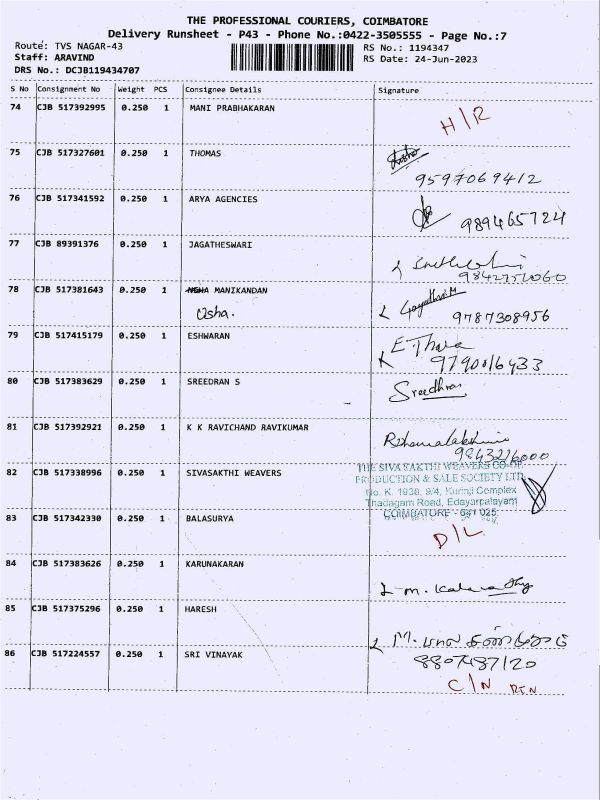 THE PROFESSIONAL COURIERS, COIMBATORE
Delivery Runsheet - P43 - Phone No.:0422-3505555 - Page No.:7
Route: TVS NAGAR-43 RS No.: 1194347
Staff: ARAVIND RS Date: 24-Jun-2023
DRS No.: DCJB119434707
S No Consignment No Weight PCS Consignee Details Signature
74 CJB 517392995 0.250 1 MANI PRABHAKARAN H/R
75 CJB 517327601 0.250 1 THOMAS
9597069412
76 CJB 517341592 0.250 1 ARYA AGENCIES 989465724
77 CJB 89391376 0.250 1 JAGATHESWARI
78 CJB 517381643 0.250 1 MANIKANDAN
Usha. 9787308956
79 CJB 517415179 0.250 1 ESHWARAN E Thara
9790016433
80 CJB 517383629 0.250 1 SREEDRAN S Sreedhran
81 CJB 517392921 1 K K RAVICHAND RAVIKUMAR
0.250
9843226000
82 CJB 517338996 0.250 1 SIVASAKTHI WEAVERS THE SIVA SAKTHI WEAVERS CO-OP
PRODUCTION & SALE SOCIETY LTD
No. K. 1938, 9/4, Kurinji Complex
Thadagam Road, Edayarpalayam
COIMBATORE - 641 025.
83 CJB 517342330 0.250 1 BALASURYA D/L
84 CJB 517383626 0.250 1 KARUNAKARAN
85 CJB 517375296 0.250 1 HARESH
86 CJB 517224557 0.250 1 SRI VINAYAK 8807487120
C/N RTN